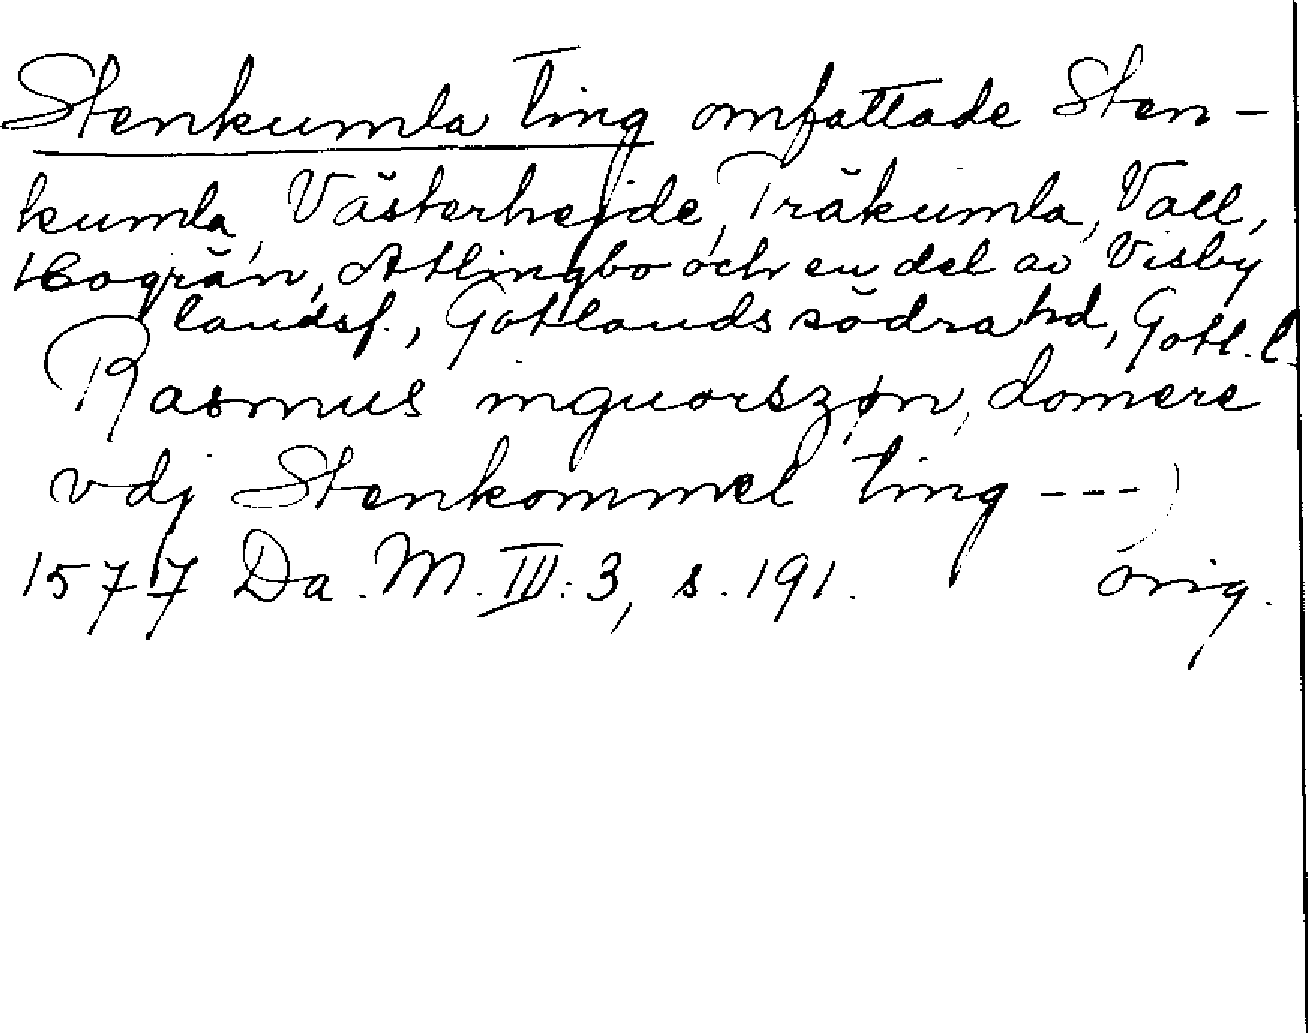 Stenkumla ting omfattade Sten-
kumla, Västerhejde, Träkumla, Vall,
Hogrän, Atlingbo och en del av Visby
landsf., Gotlands södra hd, Gotl. l.
Rasmus inguorszøn, domere
vdj Stenkommel ting ---
1577 Da. M. III: 3, s. 191. orig.